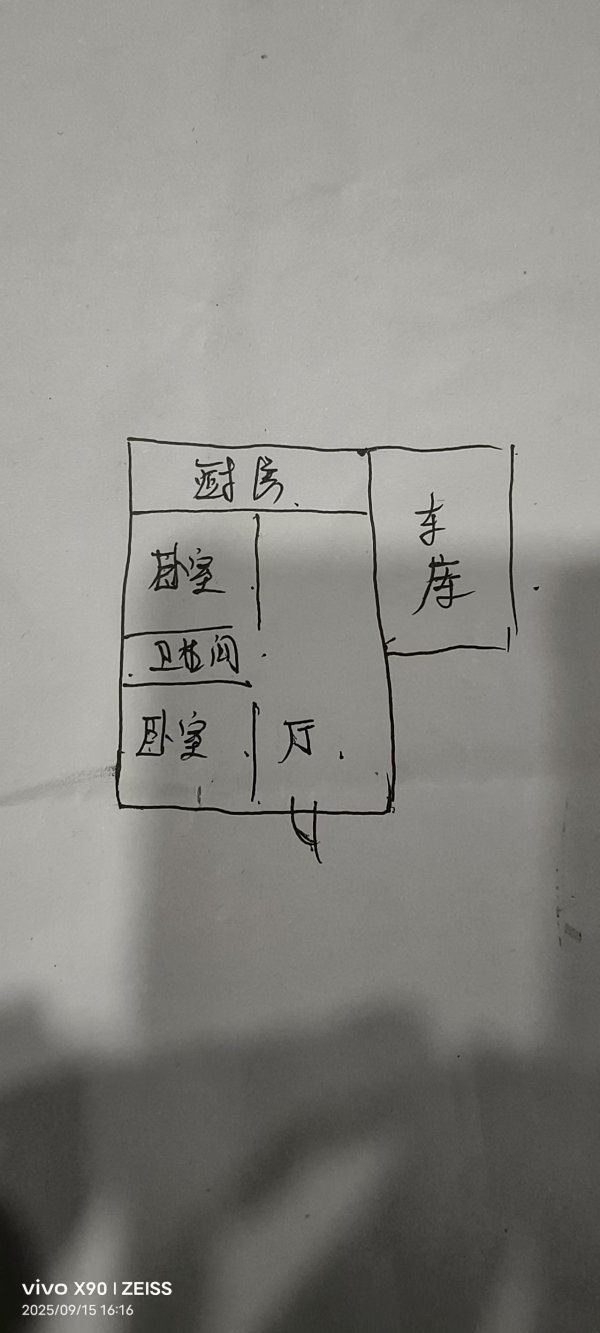 厨房
车库
卧室
卫生间
卧室
厅
vivo X90 | ZEISS
2025/09/15 16:16